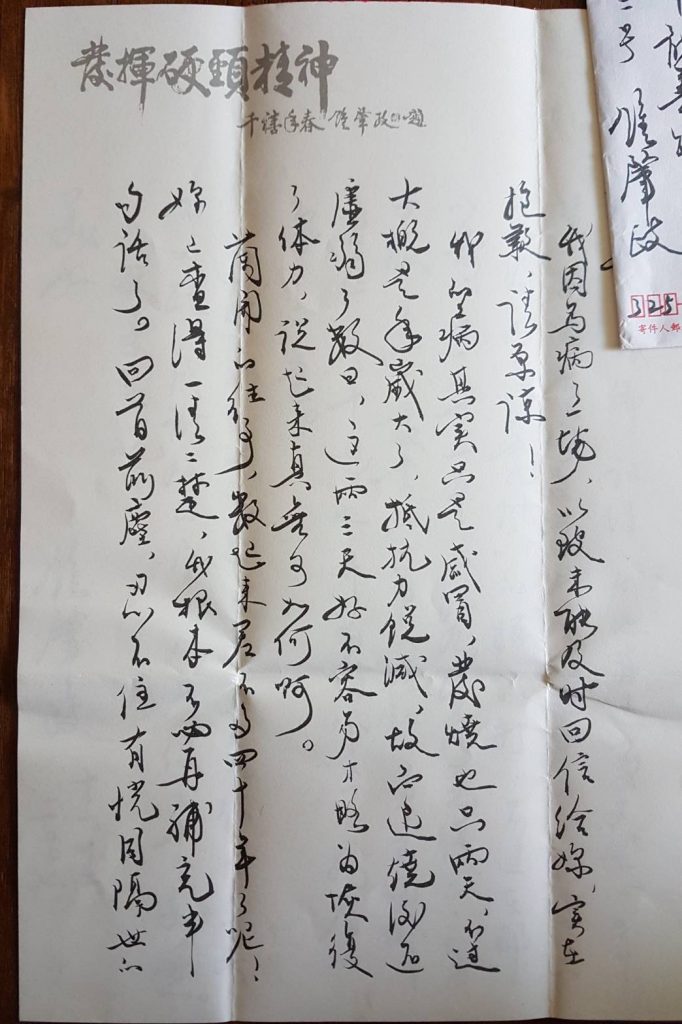 發揮硬頸精神
千禧年春 鍾肇政題
我因為病了一場，以致未能及時回信給妳，實在
抱歉，請原諒！
我的病其實只是感冒，發燒也只兩天，不過
大概是年歲大了，抵抗力銳減，故而退燒後還
虛弱了數日，這兩三天好不容易才略为恢復
了体力，說起來真無可如何啊。
的往事，數起來差不多四十年了呢！
妳已查得一清二楚，我根本不必再補充半
句話了。回首前塵，忍不住有恍同隔世的
鍾肇政
325
寄件人郵